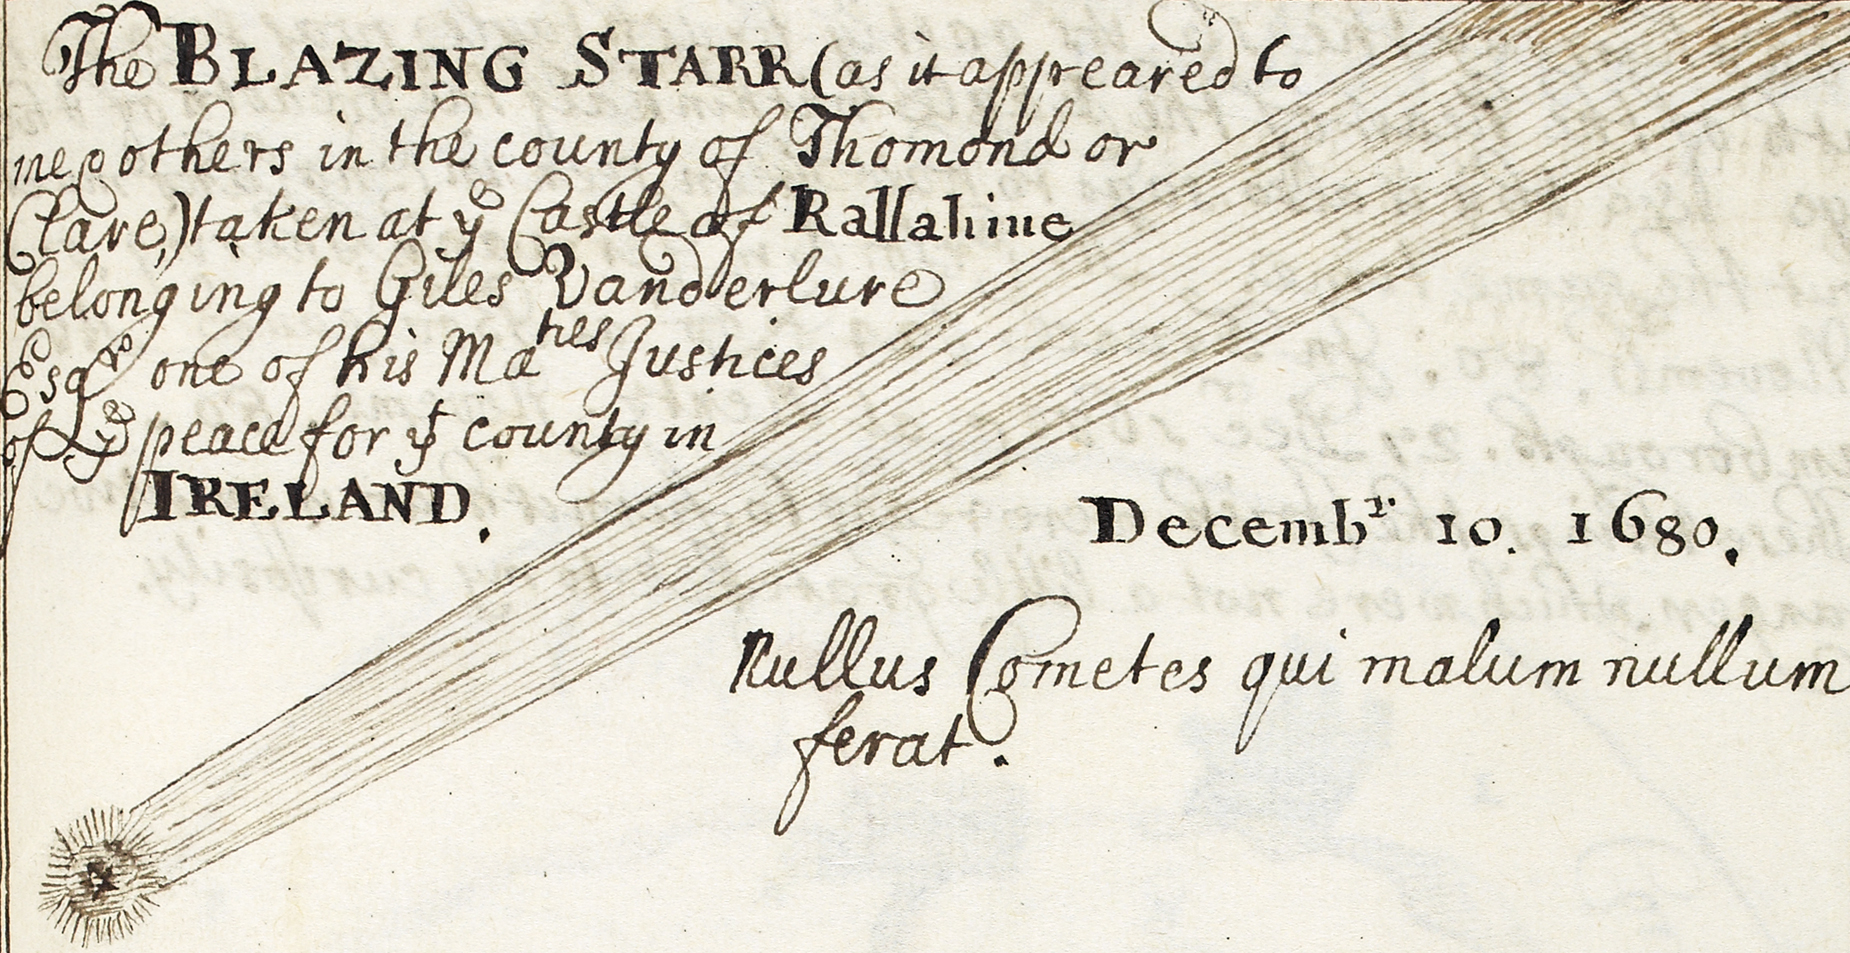 The BLAZING STARR (as it appreared to
me & others in the county of Thomond or
Clare,) taken at yᵉ Castle of Rallahine
belonging to Giles Vanderlure
Esqʳ one of his Maᵗⁱᵉˢ Justices
of yᵉ peace for yᵗ county in
IRELAND.
Decembʳ 10. 1680.
Nullus Cometes qui malum nullum
ferat.